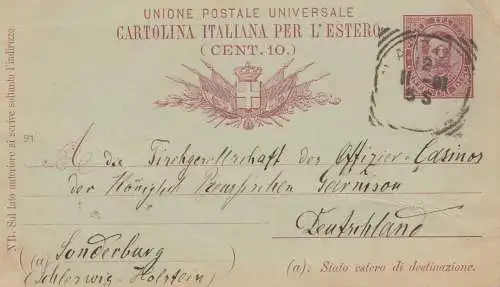 UNIONE POSTALE UNIVERSALE
CARTOLINA ITALIANA PER L'ESTERO
(CENT. 10.)
12
91
5 S
91
A die Tischgesellschaft des Offizier-Casinos
der Königlich Preussischen Garnison
Deutschland
(a) Sonderburg
(Schleswig-Holstein)
(a). Stato estero di destinazione.
NB. Sul lato anteriore si scrive soltanto l'indirizzo